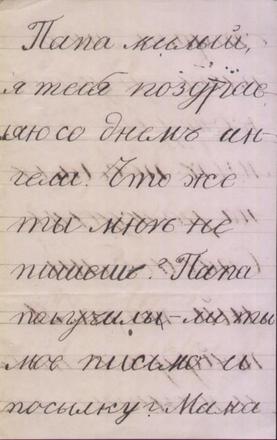 Папа милый,
я тебя поздрав
ляю со днемъ ан-
гела. Что же
ты мнѣ не
пишешь? Папа
получилъ-ли ты
мое письмо и
посылку? Мама